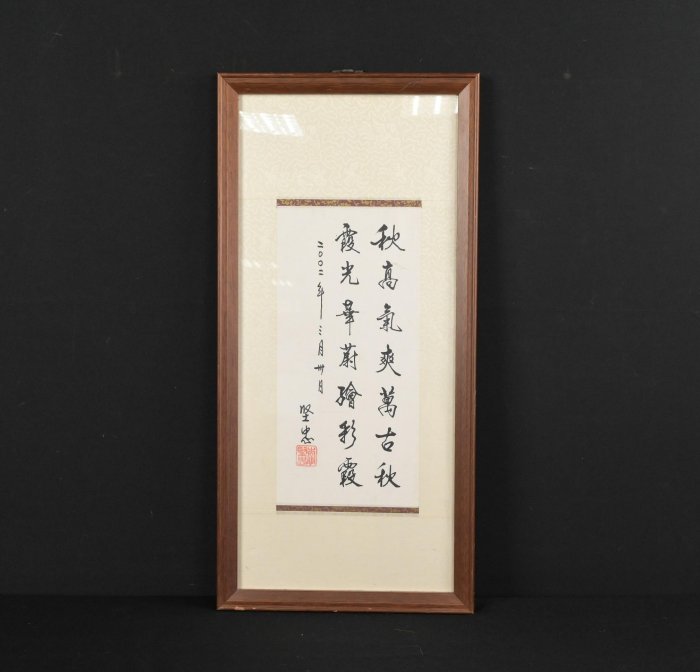 秋高氣爽萬古秋
霞光華蔚繪彩霞
二〇〇二年三月卅日
堅忠